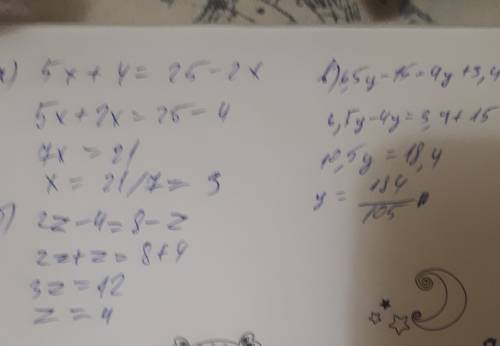 а) 5x + 4 = 25 - 2x
5x + 2x = 25 - 4
7x = 21
x = 21/7 = 3
б)
2z - 4 = 8 - z
2z + z = 8 + 4
3z = 12
z = 4
в) 6,5y - 15 = 4y + 3,4
6,5y - 4y = 3,4 + 15
10,5y = 18,4
y = 184/105